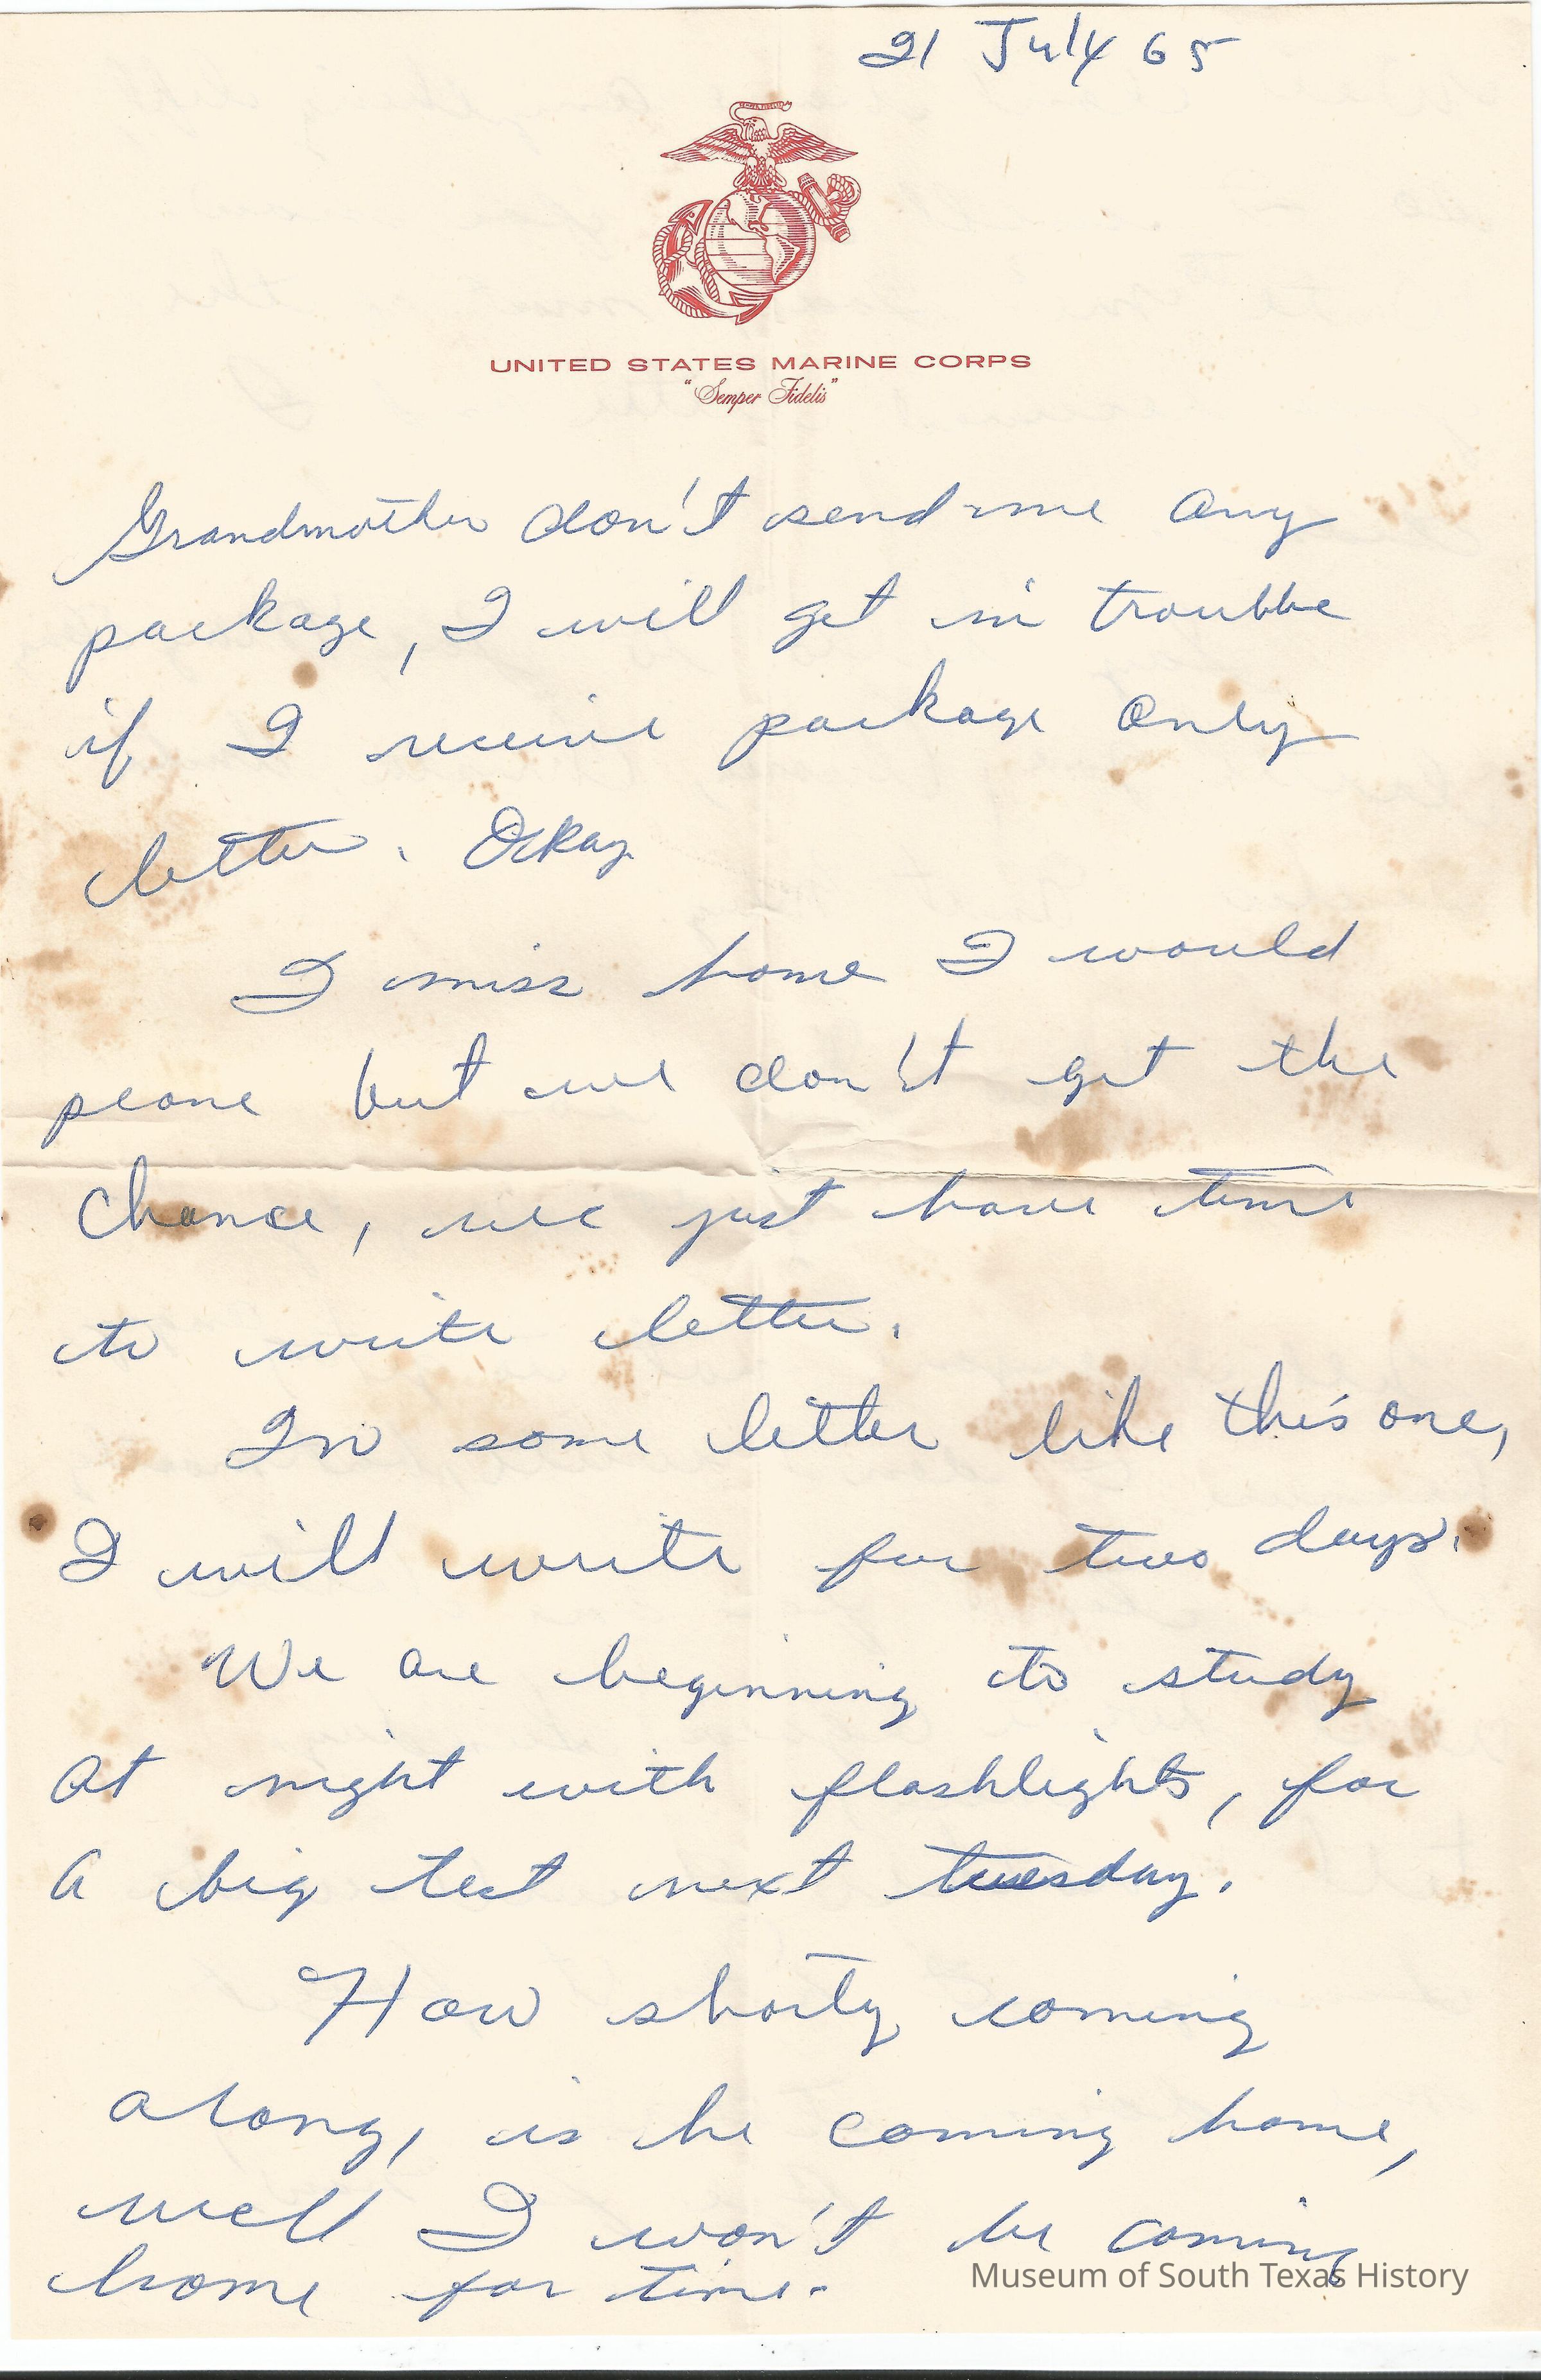 21 July 65
UNITED STATES MARINE CORPS
"Semper Fidelis"
Grandmother don't send me any
package, I will get in troubbe
if I receive package only
letter. Ockay
I miss home I would
peone but we don't get the
Chance, we just have time
to write letter.
In some letter like this one,
I will write for two days.
We are beginning to study
at night with flashlights, for
a big test next tuesday.
How shorty coming
along, is he coming home,
well I won't be coming
home for time.
Museum of South Texas History